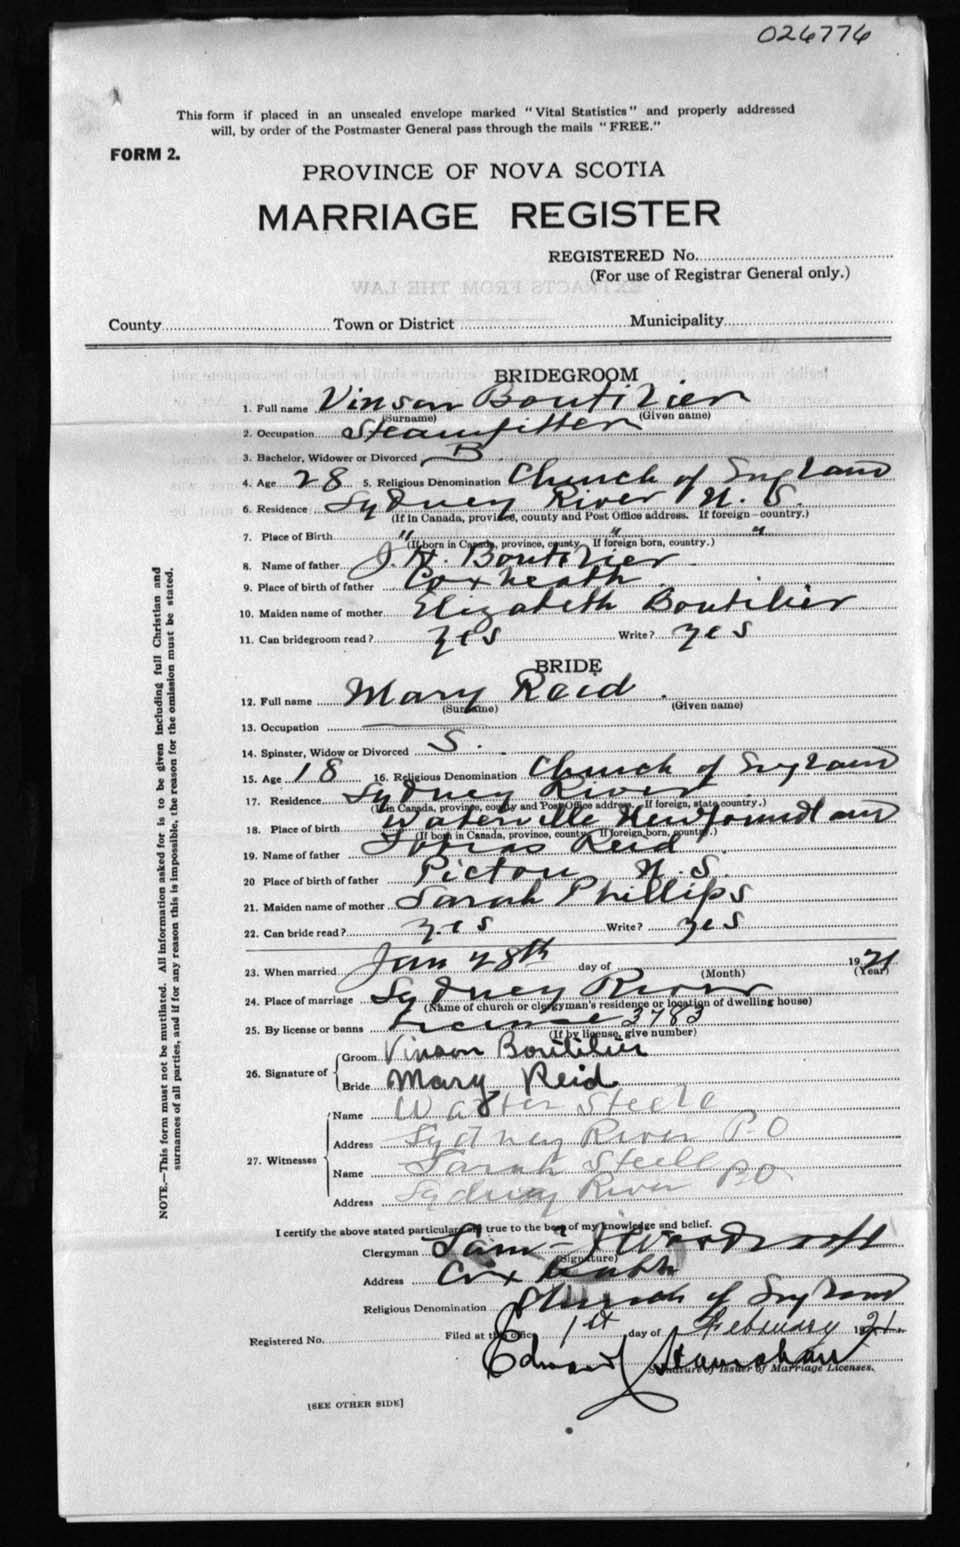 026776
This form if placed in an unsealed envelope marked "Vital Statistics" and properly addressed
will, by order of the Postmaster General pass through the mails "FREE."
FORM 2.
PROVINCE OF NOVA SCOTIA
MARRIAGE REGISTER
REGISTERED No.
(For use of Registrar General only.)
EXTRACTS FROM THE LAW
County Town or District Municipality
BRIDEGROOM
1. Full name Vinson Boutilier
(Surname) (Given name)
2. Occupation Steamfitter
3. Bachelor, Widower or Divorced B
4. Age 28 5. Religious Denomination Church of England
6. Residence Sydney River N. S.
(If in Canada, province, county and Post Office address. If foreign—country.)
7. Place of Birth " " "
(If born in Canada, province, county. If foreign born, country.)
8. Name of father J. H. Boutilier
9. Place of birth of father Coxheath
10. Maiden name of mother Elizabeth Boutilier
11. Can bridegroom read? yes Write? yes
BRIDE
12. Full name Mary Reid
(Surname) (Given name)
13. Occupation —
14. Spinster, Widow or Divorced S.
15. Age 18 16. Religious Denomination Church of England
17. Residence Sydney River
(If in Canada, province, county and Post Office address. If foreign, state country.)
18. Place of birth Waterville Newfoundland
(If born in Canada, province, county. If foreign born, country.)
19. Name of father Tobias Reid
20 Place of birth of father Pictou N. S.
21. Maiden name of mother Sarah Phillips
22. Can bride read? yes Write? yes
23. When married Jan 28th day of 1921
(Month) (Year)
24. Place of marriage Sydney River
(Name of church or clergyman's residence or location of dwelling house)
25. By license or banns License 3783
(If by license, give number)
26. Signature of
Groom Vinson Boutilier
Bride Mary Reid
27. Witnesses
Name Walter Steele
Address Sydney River P.O
Name Sarah Steell
Address Sydney River PO
I certify the above stated particulars are true to the best of my knowledge and belief.
Clergyman Sam J Woodroofe
(Signature)
Address Coxheath
Religious Denomination Church of England
Registered No. Filed at this office 1st day of February 1921.
Edward
Signature of Issuer of Marriage Licenses.
[SEE OTHER SIDE]
NOTE.—This form must not be mutilated. All information asked for is to be given including full Christian and
surnames of all parties, and if for any reason this is impossible, the reason for the omission must be stated.